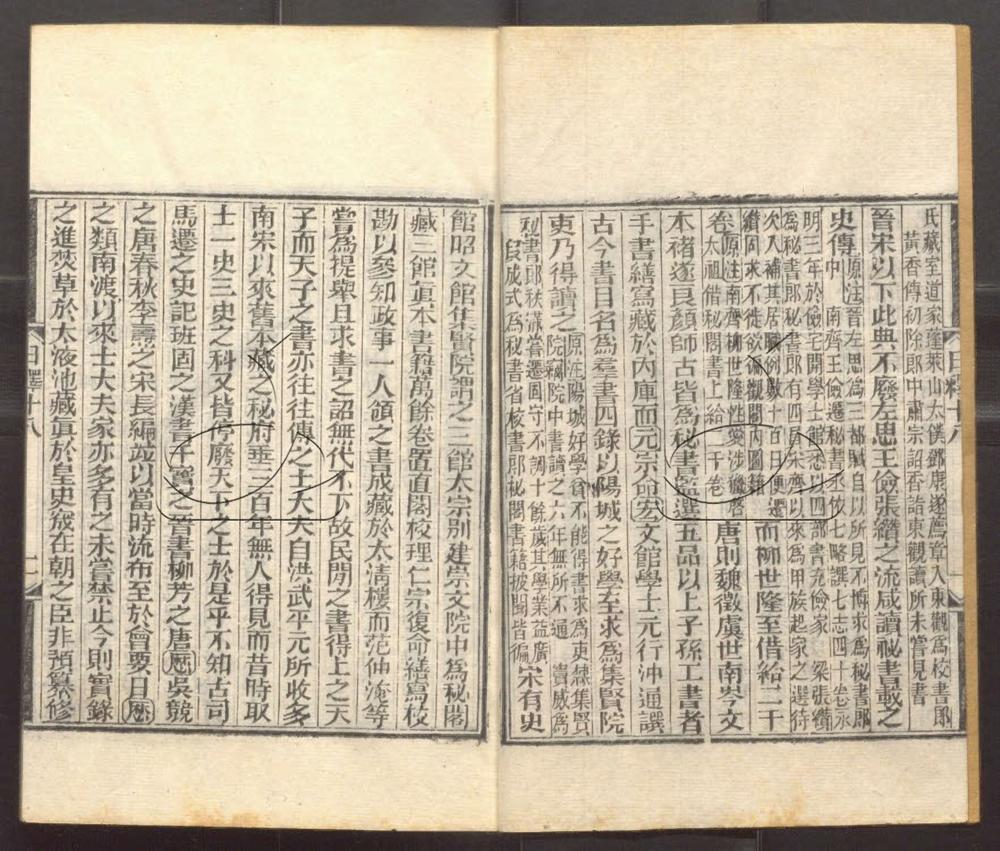 氏藏室道家蓬萊山太僕鄧康遂薦章入東觀為校書郎
黃香傳初除郎中肅宗詔香詣東觀讀所未嘗見書
晉宋以下此典不廢左思王儉張纘之流咸讀祕書載之
史傳原注晉左思為三都賦自以所見不博求為秘書郎
中　南齊王儉遷秘書丞依七略譔七志四十卷永
明三年於儉宅開學士館悉以四部書充儉家　梁張纘
為秘書郎秘書郎有四員宋齊以來為甲族起家之選待
次入補其居職例數十百日便遷
纘固求不徙欲徧觀閣內圖籍而柳世隆至借給二千
卷原注南齊柳世隆性愛涉獵啓
太祖借秘閣書上給二千卷唐則魏徵虞世南岑文
本褚遂良顏師古皆為秘書監選五品以上子孫工書者
手書繕寫藏於內庫而元宗命宏文館學士元行沖通譔
古今書目名為羣書四錄以陽城之好學至求為集賢院
吏乃得讀之原注陽城好學貧不能得書求為吏隸集賢
院竊院中書讀之六年無所不通　威為
秘書郎秩滿當遷固守不調十餘歲其學業益廣
段成式為秘書省校書郎秘閣書籍披閱皆徧宋有史
館昭文館集賢院謂之三館太宗別建崇文院中為秘閣
藏三館眞本書籍萬餘卷置直閣校理仁宗復命繕寫校
勘以參知政事一人領之書成藏於太清樓而范仲淹等
嘗為提舉且求書之詔無代不下故民閒之書得上之天
子而天子之書亦往往傳之士大夫自洪武平元所收多
南宋以來舊本藏之秘府垂三百年無人得見而昔時取
士一史三史之科又皆停廢天下之士於是乎不知古司
馬遷之史記班固之漢書干寶之晉書柳芳之唐歷吳競
之唐春秋李燾之宋長編竝以當時流布至於會要日歷
之類南渡以來士大夫家亦多有之未嘗禁止今則實錄
之進焚草於太液池藏眞於皇史宬在朝之臣非預纂修
日釋十八